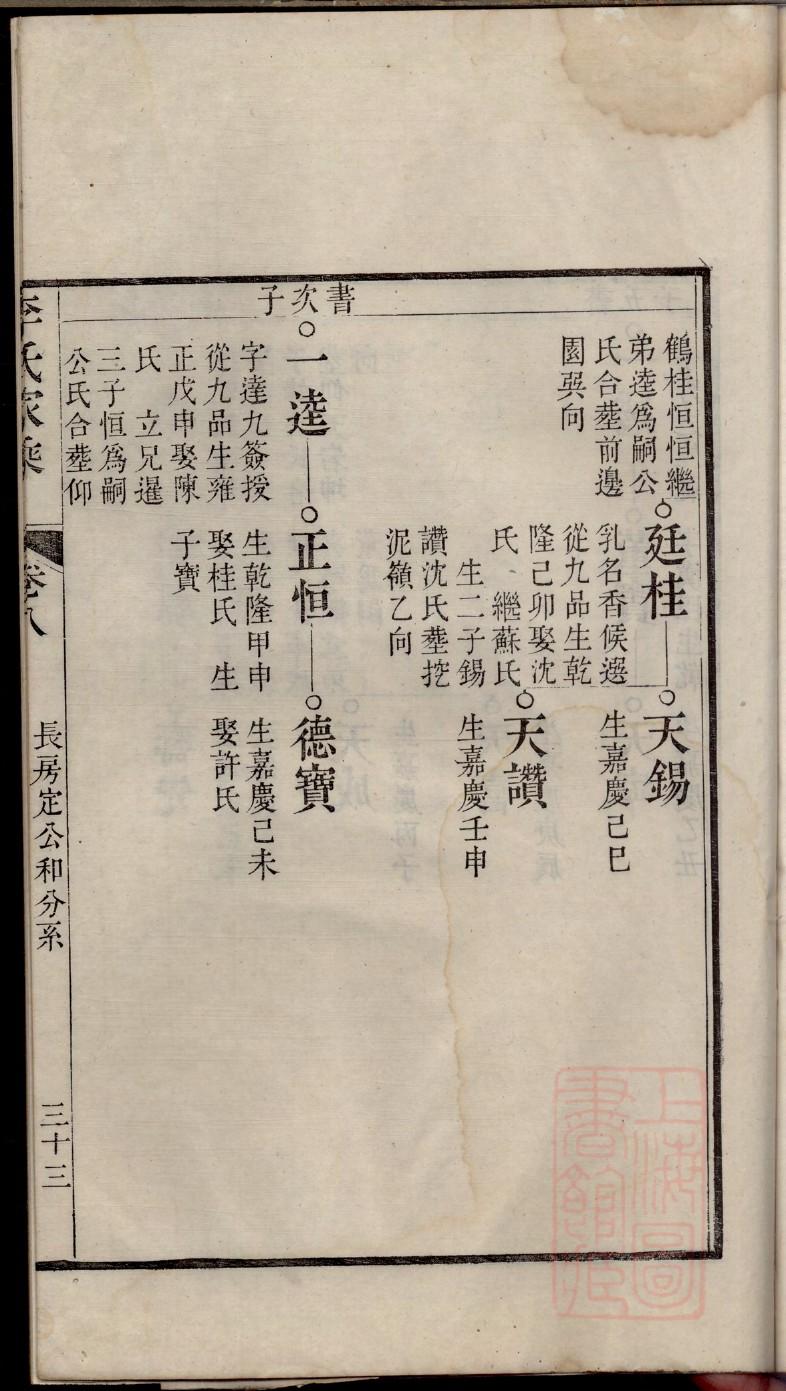 鶴桂恒恒繼
弟逵爲嗣公
氏合塟前邊
園巽向
廷桂
乳名香候選
從九品生乾
隆己卯娶沈
氏 繼蘇氏
生二子錫
讚沈氏塟挖
泥嶺乙向
天錫
生嘉慶己巳
天讚
生嘉慶壬申
書次子
一逵
字達九簽授
從九品生雍
正戊申娶陳
氏 立兄暹
三子恒爲嗣
公氏合塟仰
正恒
生乾隆甲申
娶桂氏 生
子寶
德寶
生嘉慶己未
娶許氏
李氏家乘
卷八
長房定公和分系
三十三
上海圖
書館藏